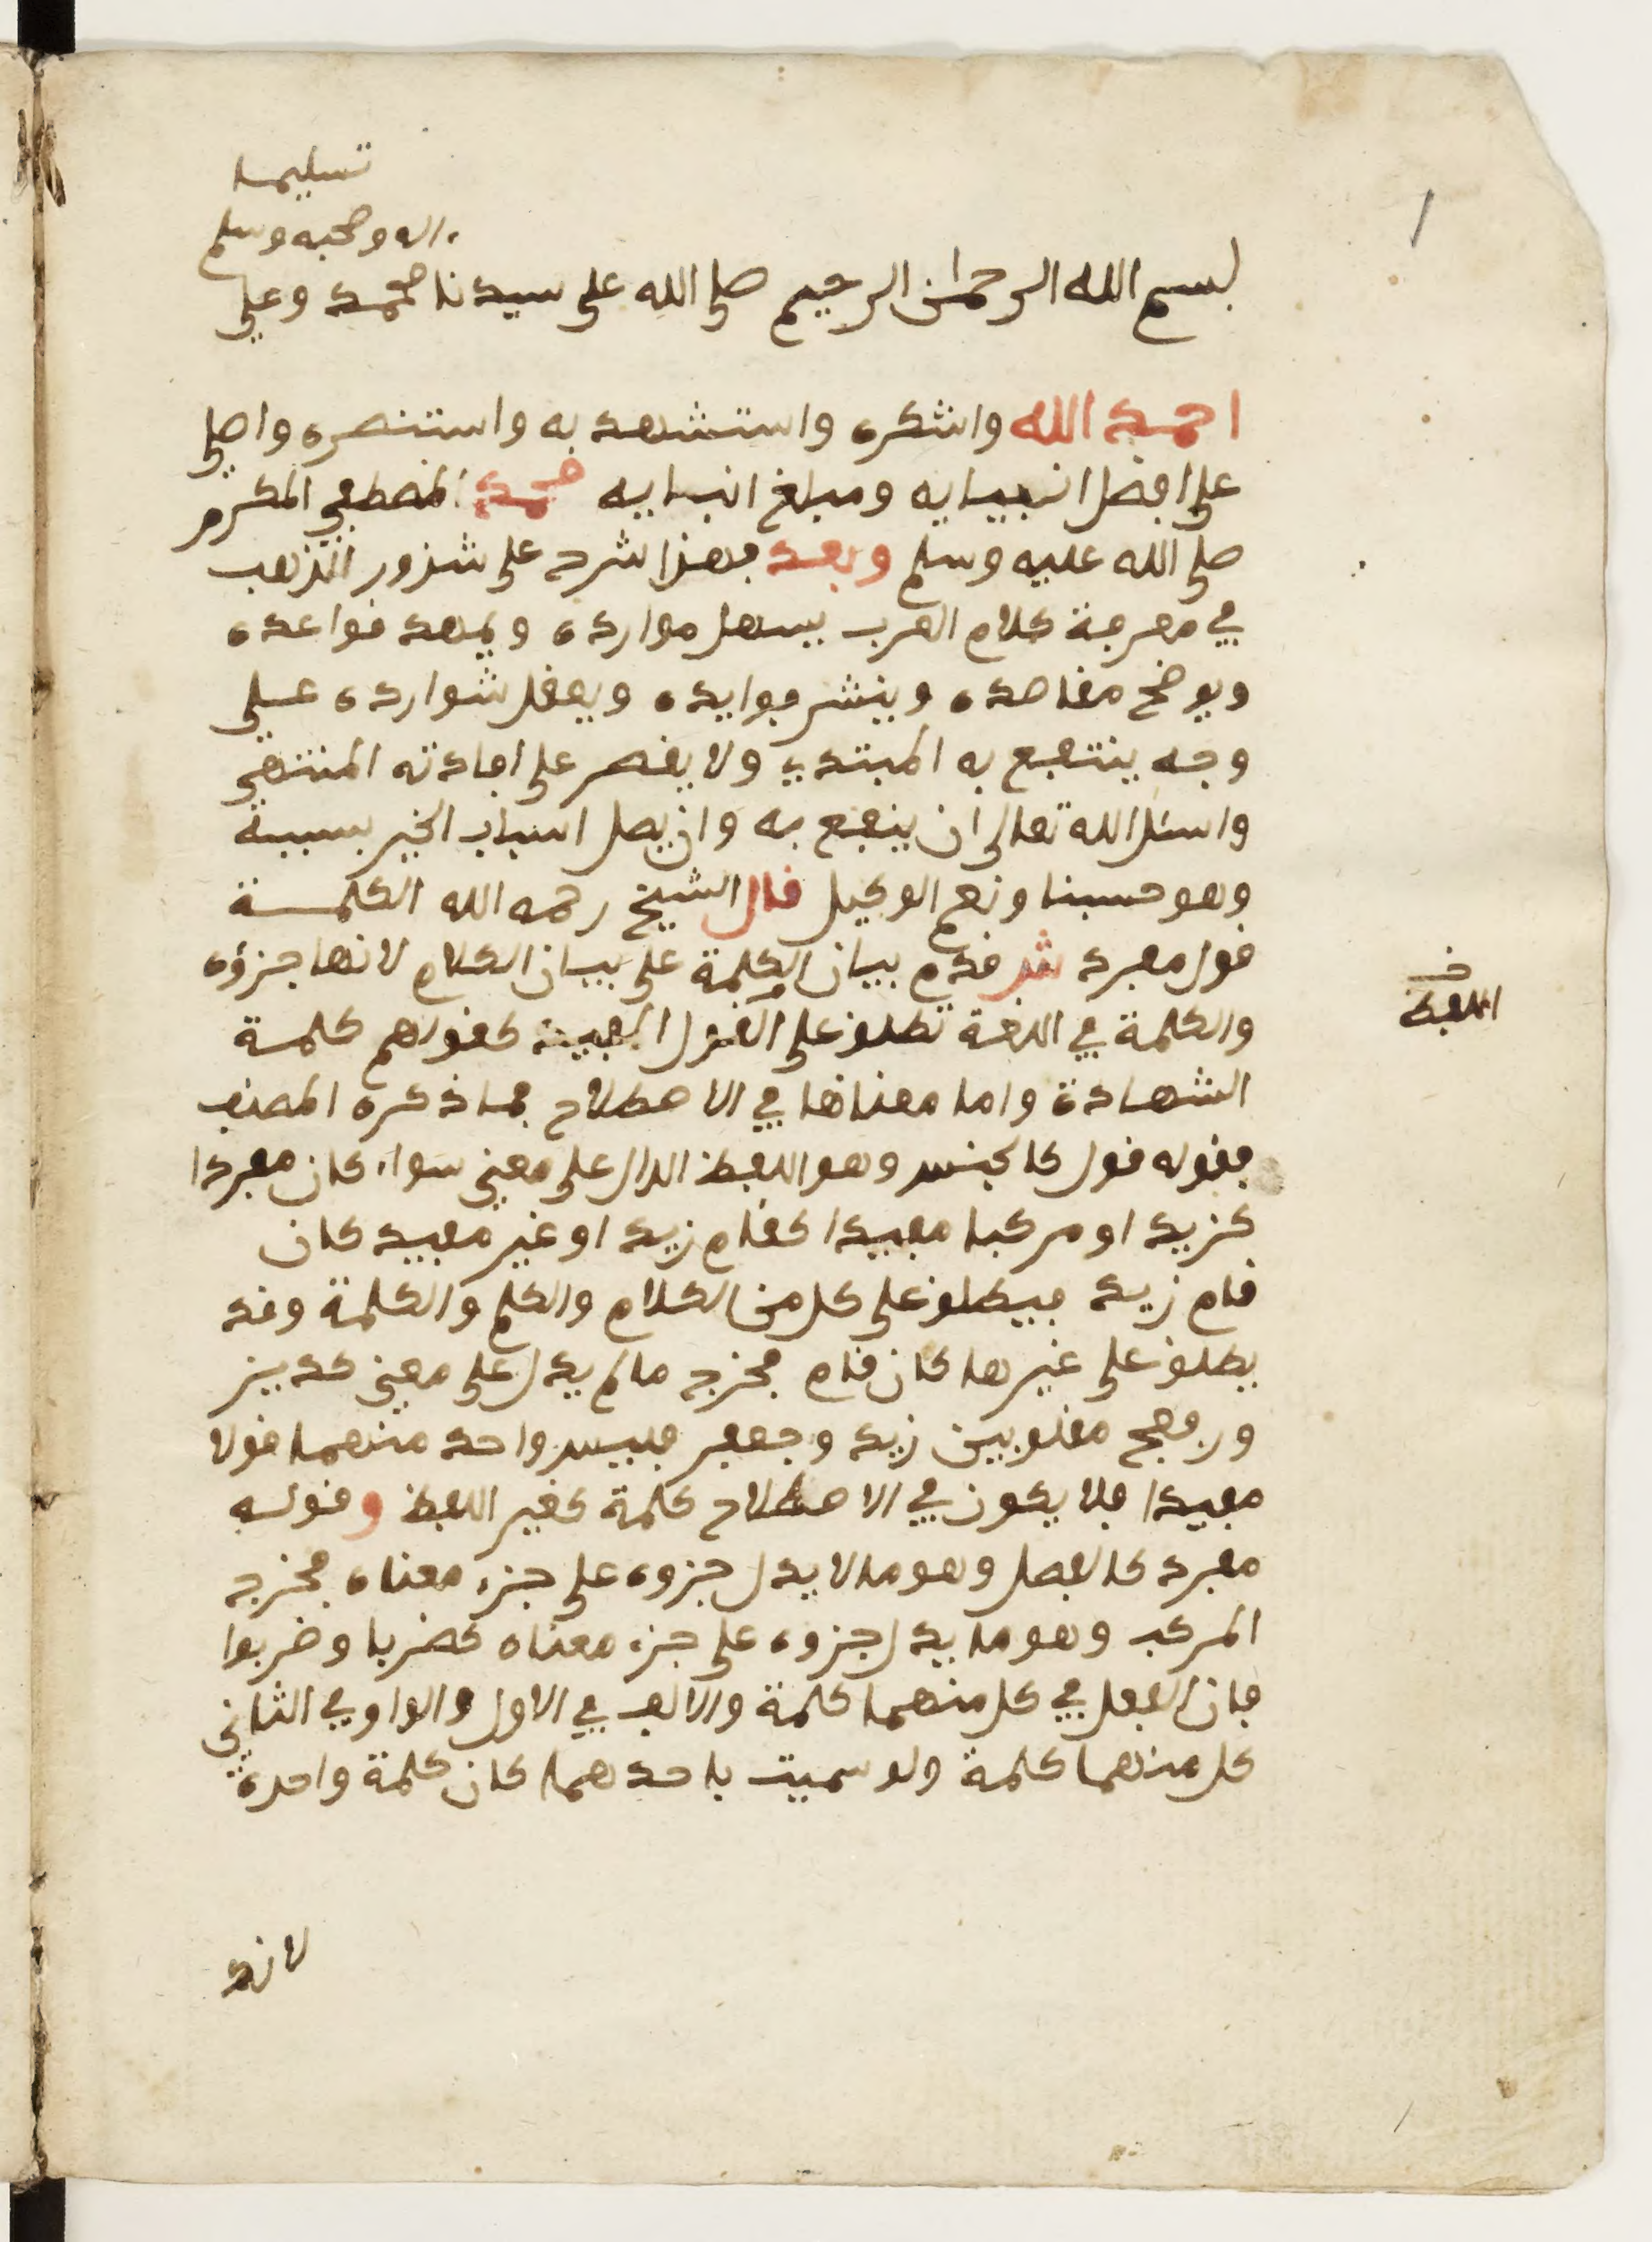 تسليما
اله وصحبه وسلم
بسم الله الرحمان الرحيم صلى الله على سيدنا محمد وعلى
احمد الله واشكره واستشهد به واستنصره واصلي
على افضل انبيايه ومبلغ انبايه محمد المصطفى المكرم
صلى الله عليه وسلم وبعد فهذا شرح على شذور الذهب
في معرفة كلام العرب يسهل موارده ويمهد قواعده
ويوضح مقاصده وينشر فوايده ويعقل شوارده على
وجه ينتفع به المبتدي ولا يقصر على افادته المنتهى
واسئل الله تعالى ان ينفع به وان يصل اسباب الخير بسببه
وهو حسبنا ونعم الوكيل قال الشيخ رحمه الله الكلمة
قول مفرد ش قدم بيان الكلمة على بيان الكلام لانها جزؤه
والكلمة في اللغة تطلق على القول المفيد كقولهم كلمة
الشهادة واما معناها في الاصطلاح فما ذكره المصنف
فقوله قول كالجنس وهو اللفظ الدال على معنى سواء كان مفردا
كزيد او مركبا مفيدا كقام زيد او غير مفيد كان
قام زيد فيطلق على كل من الكلام والكلم والكلمة وقد
يطلق على غيرها كان قام فخرج ما لم يدل على معنى كديز
ورفعج مقلوبين زيد وجعفر فليس واحد منهما قولا
مفيدا فلا يكون في الاصطلاح كلمة كغير اللفظ وقوله
مفرد كالفصل وهو ما لا يدل جزوه على جزء معناه فخرج
المركب وهو ما يدل جزوه على جزء معناه كضربا وضربوا
فان الفعل في كل منهما كلمة والالف في الاول والواو في الثاني
كل منهما كلمة ولو سميت باحدهما كان كلمة واحدة
لانك
خ
اللفظ